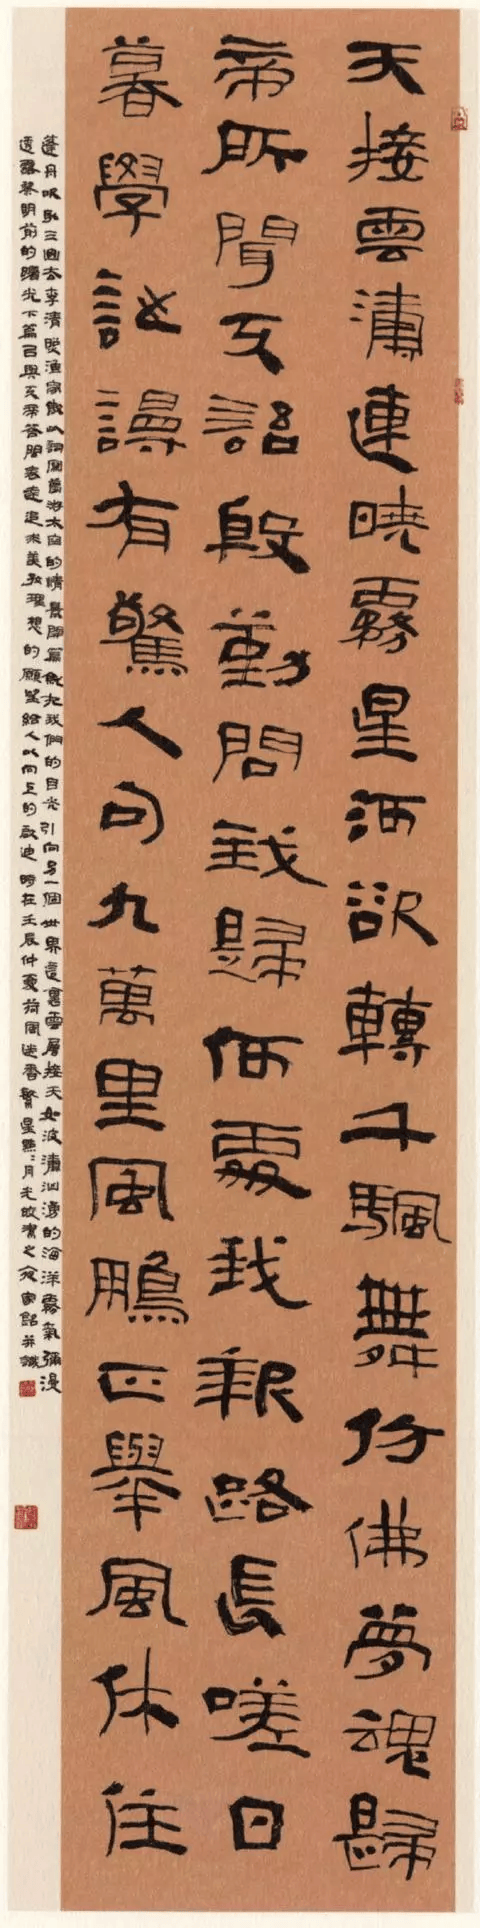 天接雲濤連曉霧星河欲轉千颿舞仿佛夢魂歸
帝所聞天語殷勤問我歸何處我報路長嗟日
暮學詩謾有驚人句九萬里風鵬正舉風休住
蓬舟吹取三山去李清照漁家傲此詞寫太空的情景開篇就把我們的目光引向另一個世界這裏雲層接天如波濤洶湧的海洋霧氣彌漫
透露黎明前的曙光下篇已與天帝答問表達追求美好理想的願望給人以向上的啟迪時在壬辰仲夏荷風送香繁星點點月光皎潔之夜家韶并識